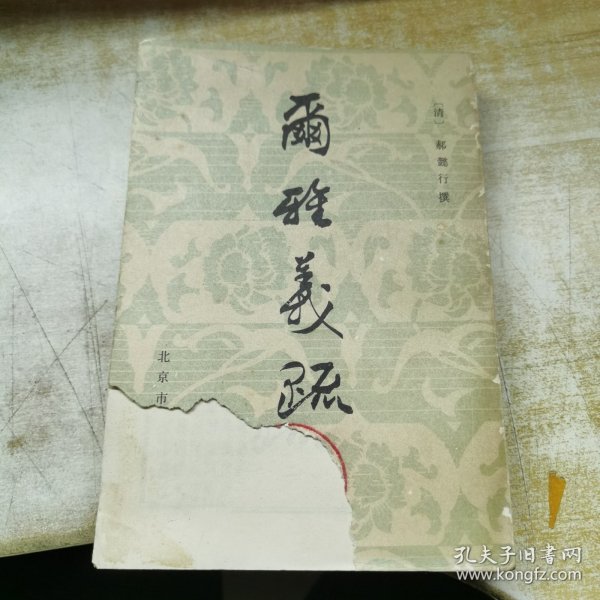 〔清〕郝懿行撰
爾雅義疏
北京市
孔夫子旧书网
www.kongfz.com